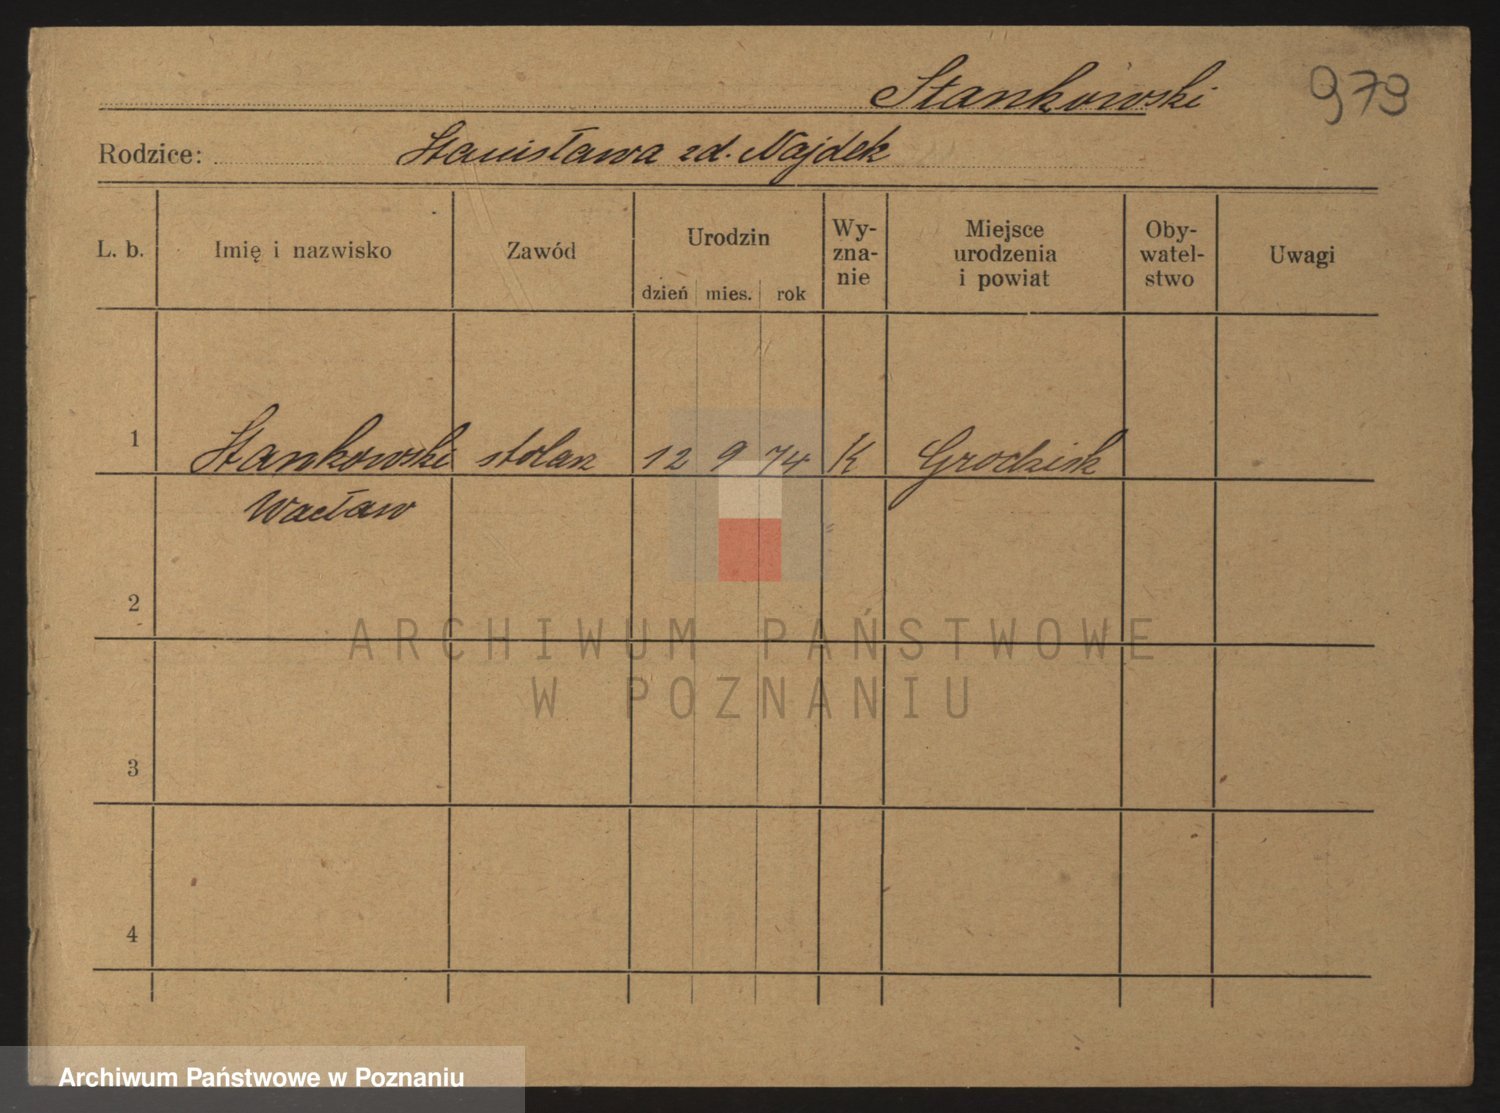 Stankowski 979
Rodzice: Stanisława zd. Najdek
L. b. Imię i nazwisko Zawód Urodzin dzień mies. rok Wy-
zna-
nie Miejsce
urodzenia
i powiat Oby-
watel-
stwo Uwagi
1 Stankowski stolarz 12 9 74 K Grodzisk
Wacław
2
3
4
ARCHIWUM PAŃSTWOWE
W POZNANIU
Archiwum Państwowe w Poznaniu